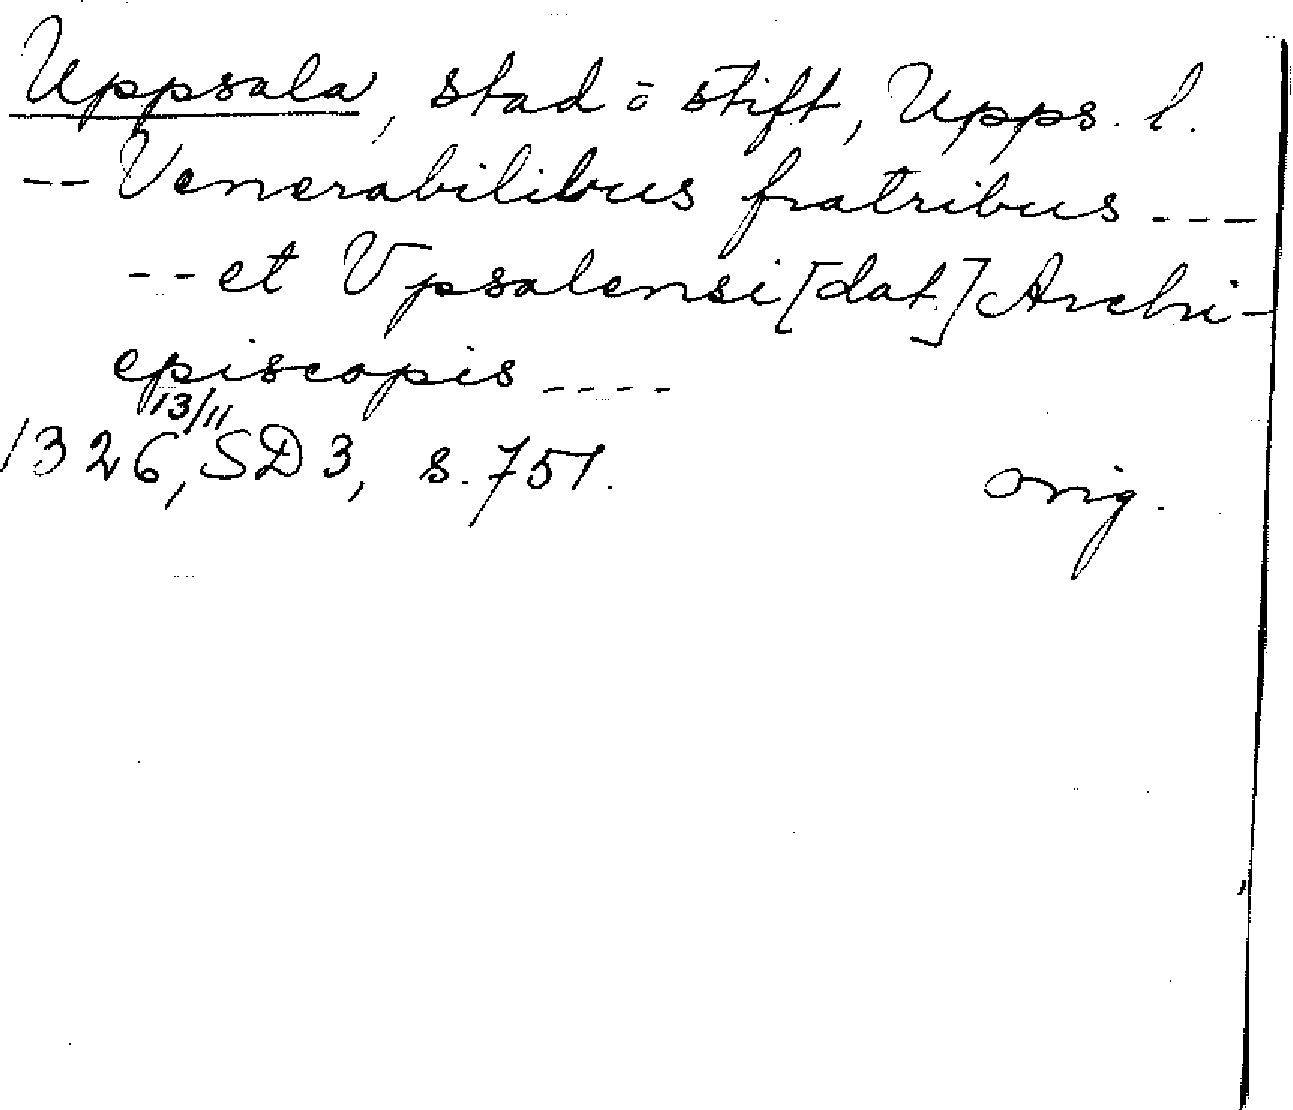 Uppsala, stad o stift, Upps. l.
-- Venerabilibus fratribus ---
-- et Vpsalensi [dat.] Archi-
episcopis ----
13/11
1326, SD 3, s. 751.
orig.